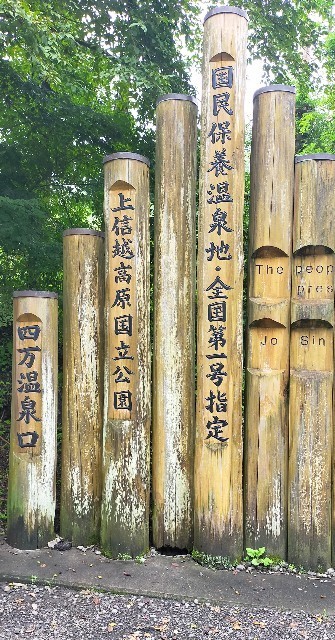 四万温泉口
上信越高原国立公園
国民保養温泉地・全国第一号指定
The peop
pres
Jo Sin